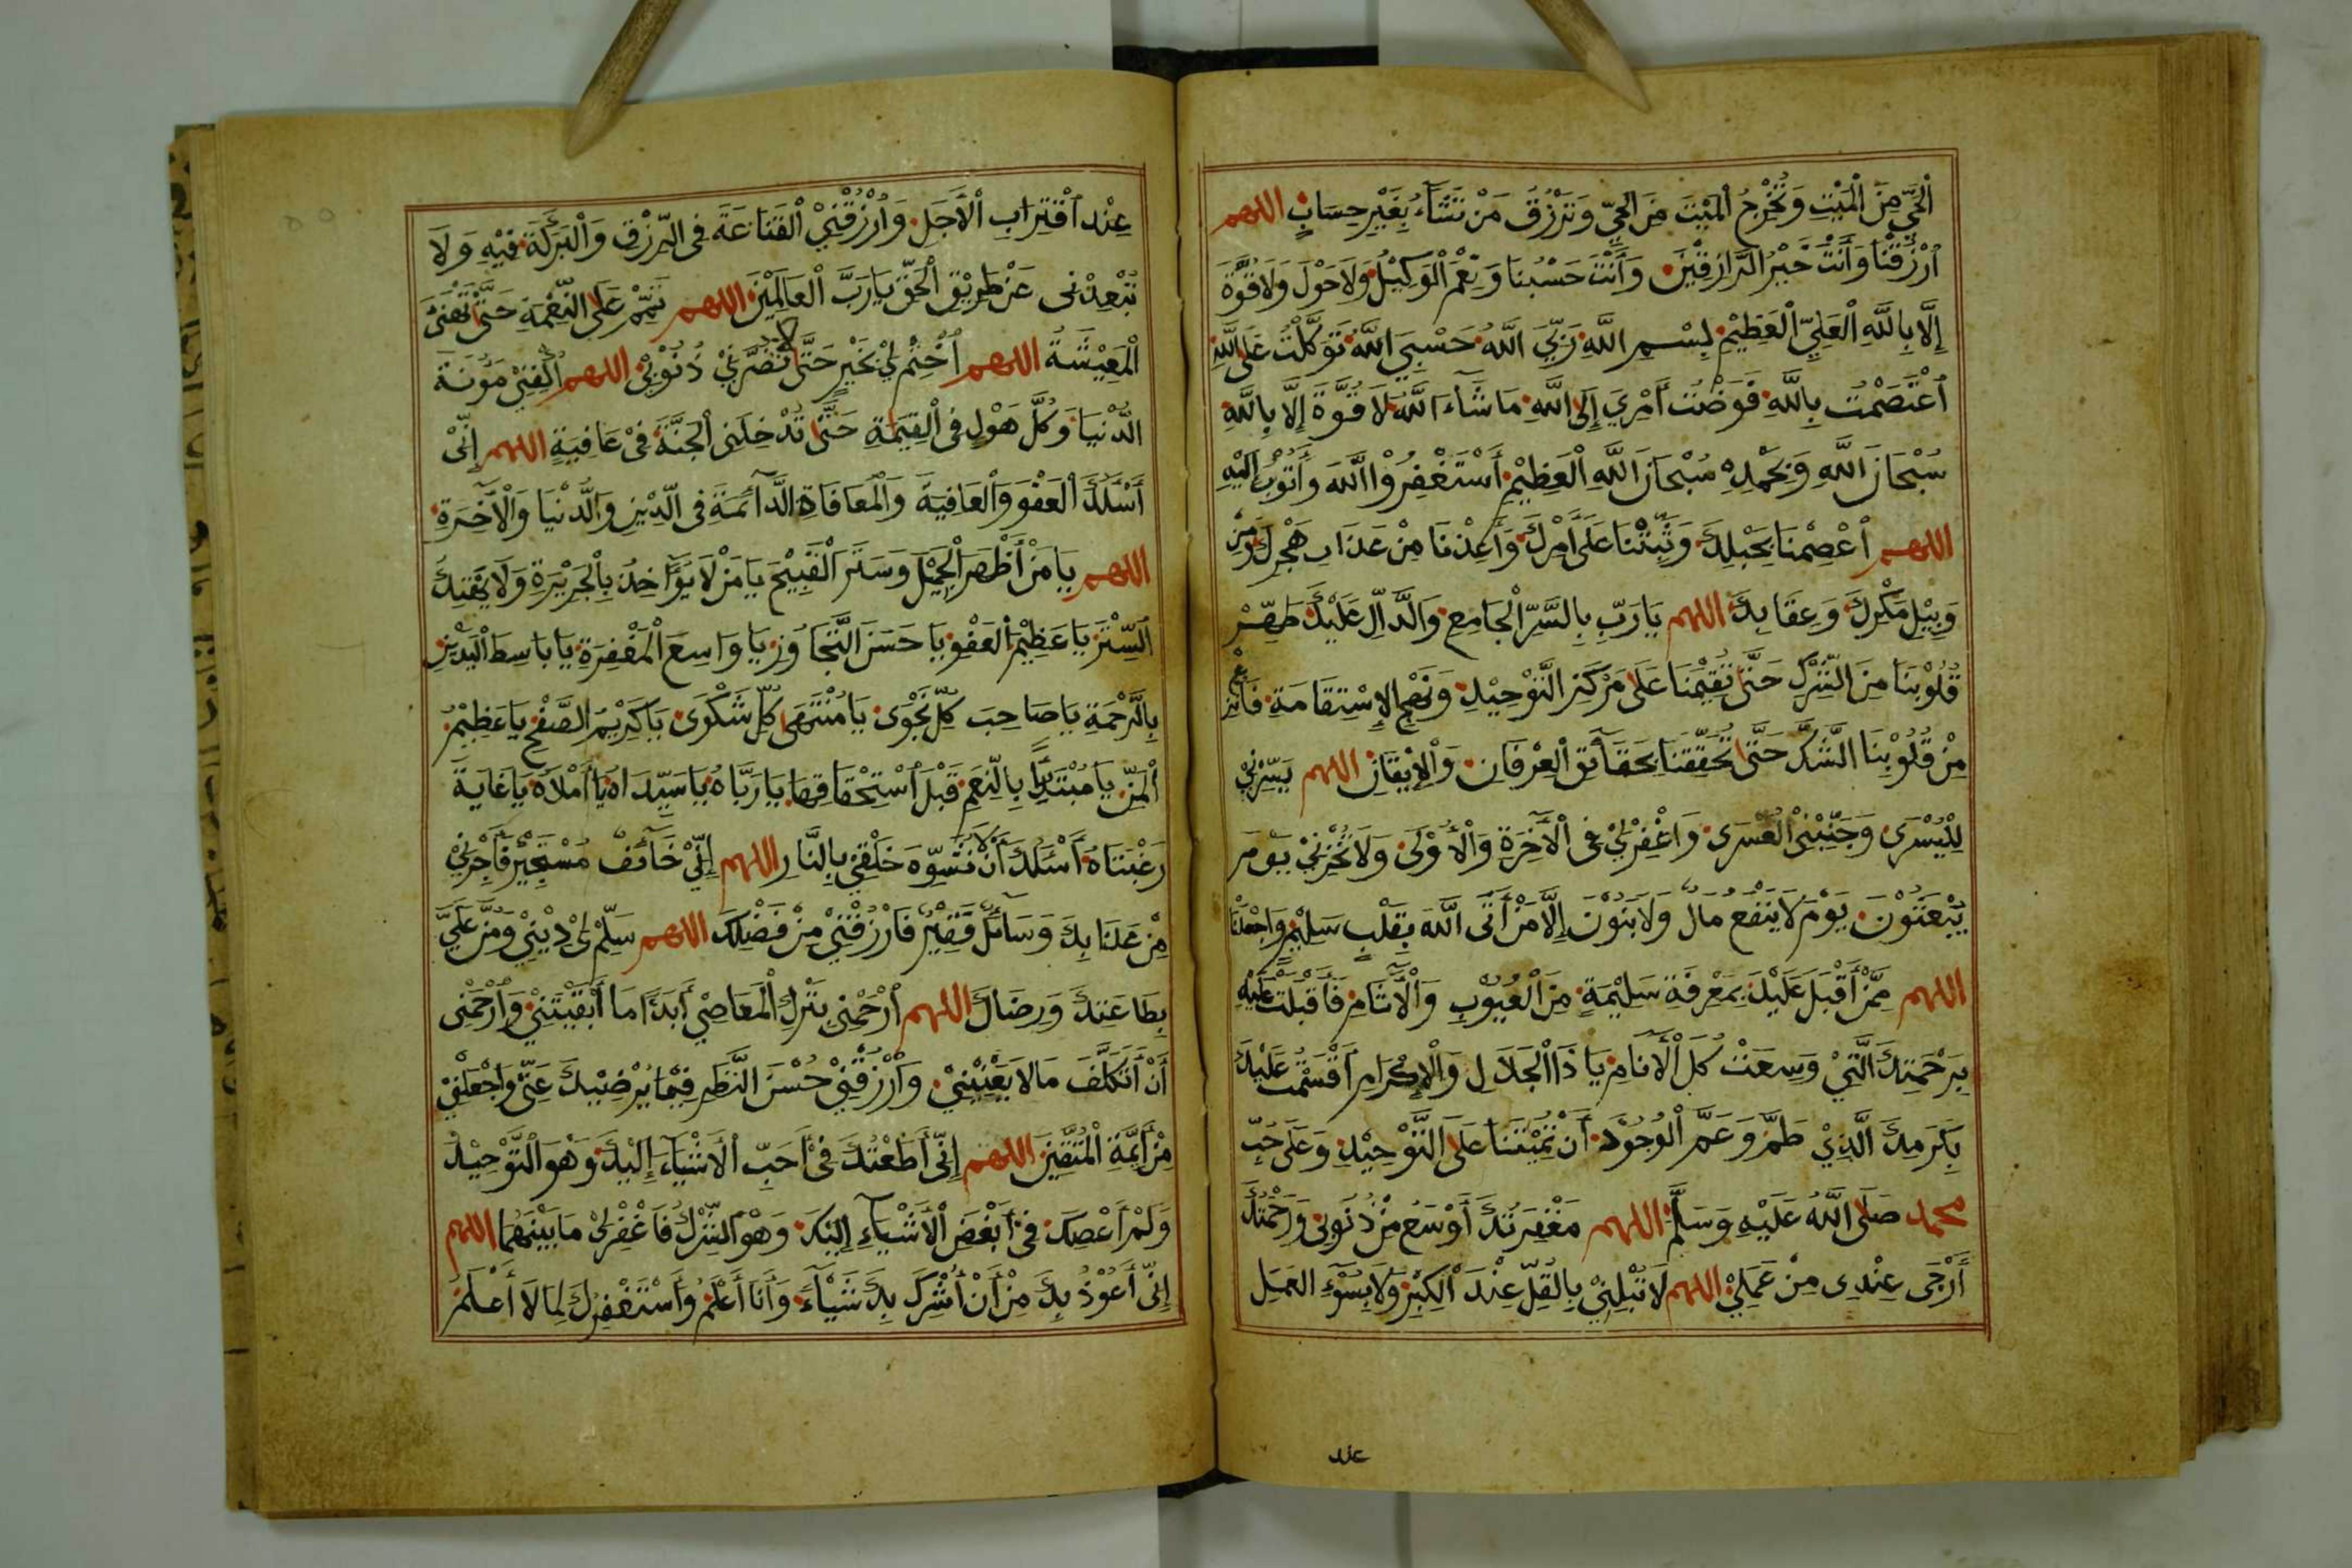 ٱلْحَيِّ مِنَ ٱلْمَيِّتِ وَتُخْرِجُ ٱلْمَيِّتَ مِنَ ٱلْحَيِّ وَتَرْزُقُ مَنْ تَشَآءُ بِغَيْرِ حِسَابٍ اللهم
ٱرْزُقْنَا وَأَنْتَ خَيْرُ الرَّازِقِيْنَ وَأَنْتَ حَسْبُنَا وَنِعْمَ ٱلْوَكِيْلُ وَلَا حَوْلَ وَلَا قُوَّةَ
إِلَّا بِاللَّهِ ٱلْعَلِيِّ ٱلْعَظِيْمِ بِسْمِ اللَّهِ رَبِّيَ اللَّهُ حَسْبِيَ اللَّهُ تَوَكَّلْتُ عَلَى اللَّهِ
ٱعْتَصَمْتُ بِاللَّهِ فَوَّضْتُ أَمْرِي إِلَى اللَّهِ مَا شَآءَ اللَّهُ لَا قُوَّةَ إِلَّا بِاللَّهِ
سُبْحَانَ اللَّهِ وَبِحَمْدِهِ سُبْحَانَ اللَّهِ ٱلْعَظِيْمِ أَسْتَغْفِرُوْا اللَّهَ وَأَتُوْبُ إِلَيْهِ
اللهم ٱعْصِمْنَا بِحَبْلِكَ وَثَبِّتْنَا عَلَى أَمْرِكَ وَأَعِذْنَا مِنْ عَذَابِ هَجْرِكَ وَمِنْ
وَبِيْلِ مَكْرِكَ وَعِقَابِكَ اللهم يَا رَبِّ بِالسِّرِّ ٱلْجَامِعِ وَالدَّالِّ عَلَيْكَ طَهِّرْ
قُلُوْبَنَا مِنَ الشِّرْكِ حَتَّى تُقِيْمَنَا عَلَى مَرْكَزِ التَّوْحِيْدِ وَنَهْجِ الْاِسْتِقَامَةِ فَانْزِعْ
مِنْ قُلُوْبِنَا الشَّكَّ حَتَّى تُحَقِّقَنَا بِحَقَآئِقِ ٱلْعِرْفَانِ وَٱلْاِيْقَانِ اللهم يَسِّرْنِيْ
لِلْيُسْرَى وَجَنِّبْنِي ٱلْعُسْرَى وَاغْفِرْلِيْ فِى ٱلْآخِرَةِ وَٱلْأُوْلَى وَلَا تُخْزِنِيْ يَوْمَ
يُبْعَثُوْنَ يَوْمَ لَا يَنْفَعُ مَالٌ وَلَا بَنُوْنَ إِلَّا مَنْ أَتَى اللَّهَ بِقَلْبٍ سَلِيْمٍ وَاجْعَلْنَا
اللهم مِمَّنْ أَقْبَلَ عَلَيْكَ بِمَعْرِفَةٍ سَلِيْمَةٍ مِنَ ٱلْعُيُوْبِ وَٱلْآثَامِ فَأَقْبَلْتَ عَلَيْهِ
بِرَحْمَتِكَ الَّتِيْ وَسِعَتْ كُلَّ ٱلْأَنَامِ يَا ذَا ٱلْجَلَالِ وَٱلْاِكْرَامِ أَقْسَمْتُ عَلَيْكَ
بِكَرَمِكَ الَّذِيْ طَمَّ وَعَمَّ ٱلْوُجُوْدَ أَنْ تُمِيْتَنَا عَلَى التَّوْحِيْدِ وَعَلَى حُبِّ
محمد صَلَّى اللَّهُ عَلَيْهِ وَسَلَّمَ اللهم مَغْفِرَتُكَ أَوْسَعُ مِنْ ذُنُوْبِى وَرَحْمَتُكَ
أَرْجَى عِنْدِى مِنْ عَمَلِيْ اللهم لَا تُبْلِنِيْ بِالْقِلِّ عِنْدَ ٱلْكِبَرِ وَلَا بِسُوْٓءِ العَمَلِ
عند
عِنْدَ ٱقْتِرَابِ ٱلْأَجَلِ وَارْزُقْنِيْ ٱلْقَنَاعَةَ فِى الرِّزْقِ وَالْبَرَكَةَ فِيْهِ وَلَا
تُبْعِدْنِى عَنْ طَرِيْقِ ٱلْحَقِّ يَا رَبَّ ٱلْعَالَمِيْنَ اللهم تَمِّمْ عَلَى النِّعْمَةِ حَتَّى تَهْنِئَ
ٱلْمَعِيْشَةُ اللهم ٱخْتِمْ لِيْ بِخَيْرٍ حَتَّى لا تَضُرَّنِيْ ذُنُوْبِيْ اللهم ٱكْفِنِيْ مَؤُنَةَ
الدُّنْيَا وَكُلَّ هَوْلٍ فِى ٱلْقِيٰمَةِ حَتَّى تُدْخِلَنِى ٱلْجَنَّةَ فِىْ عَافِيَةٍ اللهم إِنِّىْ
أَسْئَلُكَ ٱلْعَفْوَ وَٱلْعَافِيَةَ وَٱلْمُعَافَاةَ الدَّآئِمَةَ فِى الدِّيْنِ وَالدُّنْيَا وَٱلْآخِرَةِ
اللهم يَا مَنْ أَظْهَرَ ٱلْجَمِيْلَ وَسَتَرَ ٱلْقَبِيْحَ يَا مَنْ لَا يُؤَاخِذُ بِٱلْجَرِيْرَةِ وَلَا يَهْتِكُ
السِّتْرَ يَا عَظِيْمَ ٱلْعَفْوِ يَا حَسَنَ التَّجَاوُزِ يَا وَاسِعَ ٱلْمَغْفِرَةِ يَا بَاسِطَ ٱلْيَدَيْنِ
بِالرَّحْمَةِ يَا صَاحِبَ كُلِّ نَجْوَى يَا مُنْتَهَى كُلِّ شَكْوَى يَا كَرِيْمَ الصَّفْحِ يَا عَظِيْمَ
ٱلْمَنِّ يَا مُبْتَدِئًا بِالنِّعَمِ قَبْلَ ٱسْتِحْقَاقِهَا يَا رَبَّاهُ يَا سَيِّدَاهُ يَا أَمَلَاهُ يَا غَايَةَ
رَغْبَتَاهُ أَسْئَلُكَ أَنْ لا تُشَوِّهَ خَلْقِيْ بِالنَّارِ اللهم إِنِّيْ خَآئِفٌ مُسْتَجِيْرٌ فَأَجِرْنِيْ
مِنْ عَذَابِكَ وَسَآئِلٌ فَقِيْرٌ فَارْزُقْنِيْ مِنْ فَضْلِكَ اللهم سَلِّمْ لِى دِيْنِيْ وَمُنَّ عَلَيَّ
بِطَاعَتِكَ وَرِضَاكَ اللهم ٱرْحَمْنِيْ بِتَرْكِ ٱلْمَعَاصِيْ أَبَدًا مَا أَبْقَيْتَنِيْ وَارْحَمْنِى
أَنْ أَتَكَلَّفَ مَا لَا يَعْنِيْنِيْ وَارْزُقْنِيْ حُسْنَ النَّظَرِ فِيْمَا يُرْضِيْكَ عَنِّىْ وَاجْعَلْنِيْ
مِنْ أَئِمَّةِ ٱلْمُتَّقِيْنَ اللهم إِنِّى أَطَعْتُكَ فِىْ أَحَبِّ ٱلْأَشْيَآءِ إِلَيْكَ وَهُوَ التَّوْحِيْدُ
وَلَمْ أَعْصِكَ فِىْ أَبْغَضِ ٱلْأَشْيَآءِ إِلَيْكَ وَهُوَ الشِّرْكُ فَاغْفِرْلِيْ مَا بَيْنَهُمَا اللهم
إِنِّى أَعُوْذُ بِكَ مِنْ أَنْ أُشْرِكَ بِكَ شَيْأً وَأَنَا أَعْلَمُ وَأَسْتَغْفِرُكَ لِمَا لَا أَعْلَمُ